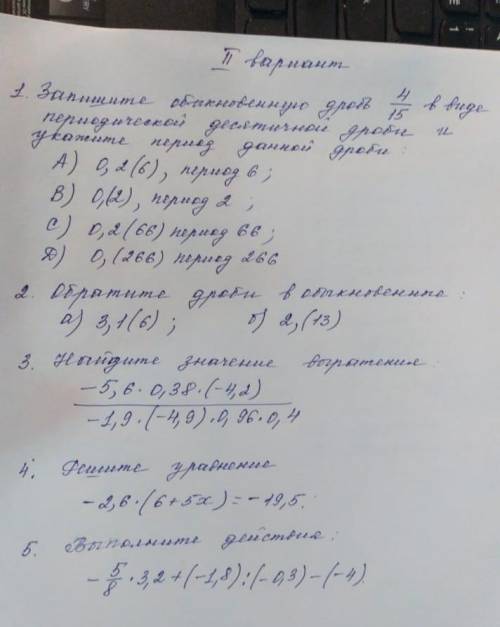 II вариант
1. Запишите обыкновенную дробь 4/15 в виде
периодической десятичной дроби и
укажите период данной дроби:
А) 0,2(6), период 6;
В) 0,(2), период 2;
С) 0,2(66) период 66;
Д) 0,(266) период 266
2. Обратите дроби в обыкновенные:
а) 3,1(6); б) 2,(13)
3. Найдите значение выражения:
-5,6·0,38·(-4,2)
-1,9·(-4,9)·0,96·0,4
4. Решите уравнение
-2,6·(6+5x)=-19,5.
5. Выполните действия:
-5/8·3,2+(-1,8):(-0,3)-(-4).